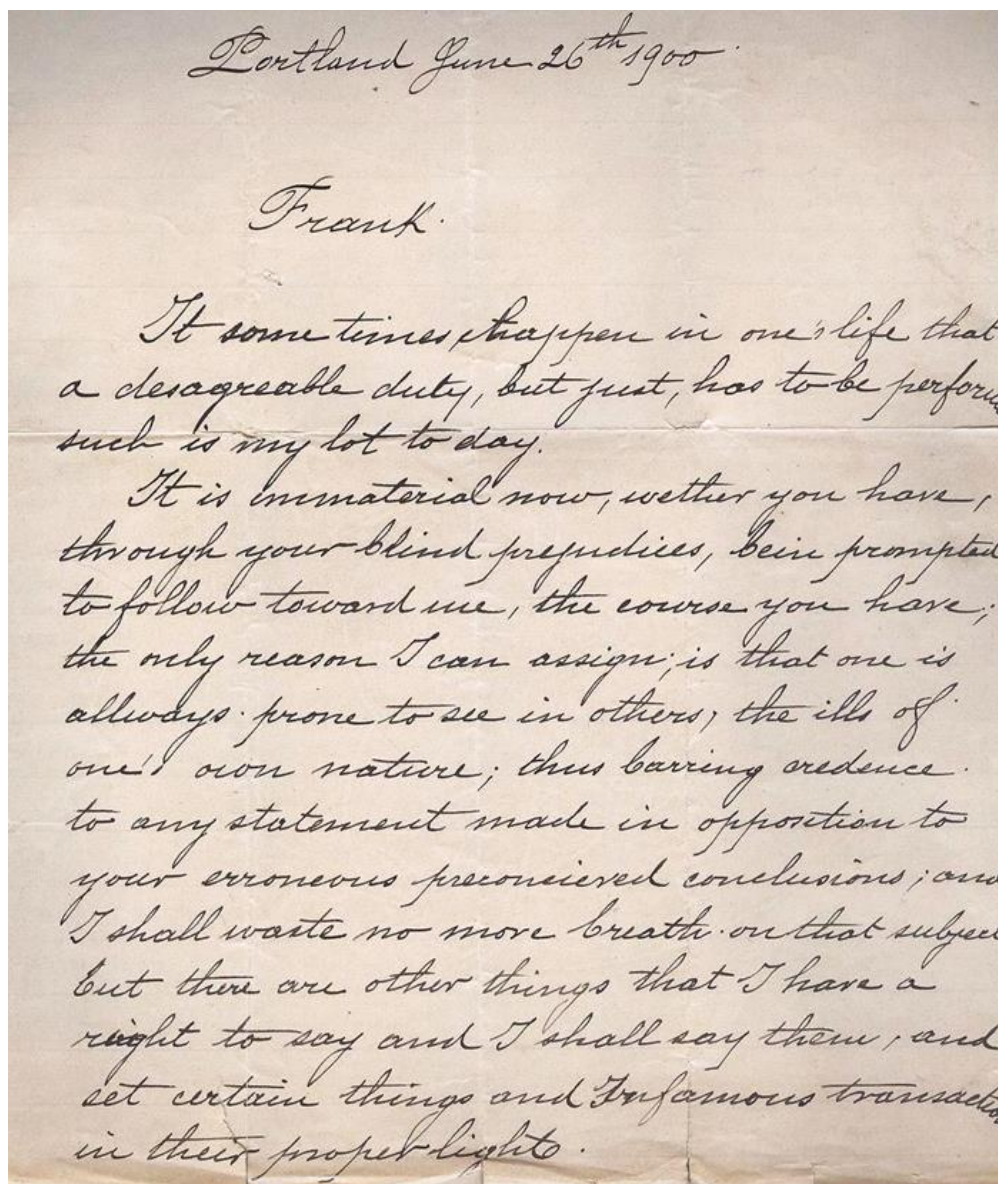 Portland June 26th 1900
Frank.
It some times happen in one's life that
a desagreable duty, but just, has to be perform
such is my lot to day.
It is immaterial now, wether you have,
through your blind prejudices, bein prompted
to follow toward me, the course you have;
the only reason I can assign; is that one is
allways prone to see in others, the ills of
one's own nature; thus barring credence
to any statement made in opposition to
your erroneous preconcieved conclusions; and
I shall waste no more breath on that subject
but there are other things that I have a
right to say and I shall say them, and
set certain things and Infamous transaction
in their proper light.